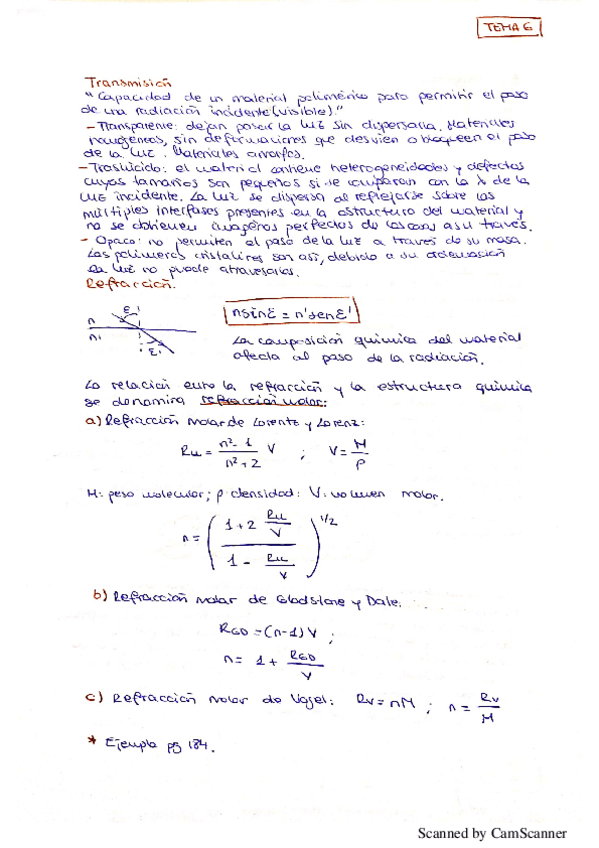 TEMA 6
Transmisión
"Capacidad de un material polimérico para permitir el paso
de una radiación incidente (visible)."
- Transparente: dejan pasar la luz sin dispersarla. Materiales
homogéneos, sin deformaciones que desvíen o bloqueen el paso
de la luz. Materiales amorfos.
- Traslúcido: el material contiene heterogeneidades y defectos
cuyos tamaños son pequeños si se comparan con la λ de la
luz incidente. La luz se dispersa al reflejarse sobre las
múltiples interfases presentes en la estructura del material y
no se obtienen imágenes perfectas de las cosas a su través.
- Opaco: no permiten el paso de la luz a través de su masa.
Los polímeros cristalinos son así, debido a su ordenación
la luz no puede atravesarlos.
Refracción.
ε
n
n'
ε'
n sin ε = n' sen ε'
La composición química del material
afecta al paso de la radiación.
La relación entre la refracción y la estructura química
se denomina refracción molar:
a) Refracción molar de Lorentz y Lorenz:
R_LL = (n² - 1)/(n² + 2) V ; V = M/ρ
M: peso molecular; ρ: densidad: V: volumen molar.
n = ((1 + 2 R_LL/V)/(1 - R_LL/V))^1/2
b) Refracción molar de Gladstone y Dale:
R_GD = (n-1) V ;
n = 1 + R_GD/V
c) Refracción molar de Vogel: Rv = nM ; n = Rv/M
* Ejemplo pg 184.
Scanned by CamScanner